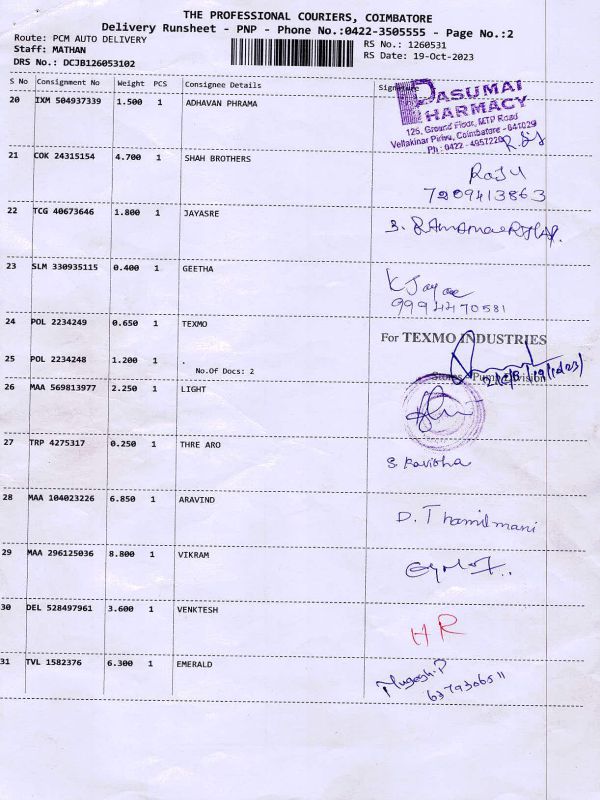 THE PROFESSIONAL COURIERS, COIMBATORE
Delivery Runsheet - PNP - Phone No.:0422-3505555 - Page No.:2
Route: PCM AUTO DELIVERY
RS No.: 1260531
Staff: MATHAN
RS Date: 19-Oct-2023
DRS No.: DCJB126053102
S No Consignment No Weight PCS Consignee Details Signature
20 IXM 504937339 1.500 1 ADHAVAN PHRAMA
PASUMAI
PHARMACY
126, Ground Floor, MTP Road
Vellakinar Pirivu, Coimbatore - 641029
Ph : 0422 - 4957220
21 COK 24315154 4.700 1 SHAH BROTHERS
RAJU
7209413863
22 TCG 40673646 1.800 1 JAYASRE
23 SLM 330935115 0.400 1 GEETHA
K Jayae
9994470581
24 POL 2234249 0.650 1 TEXMO
For TEXMO INDUSTRIES
25 POL 2234248 1.200 1 .
No.Of Docs: 2
Stores - Pump Division
26 MAA 569813977 2.250 1 LIGHT
27 TRP 4275317 0.250 1 THRE ARO
S. Kavitha
28 MAA 104023226 6.850 1 ARAVIND
D. Thamilmani
29 MAA 296125036 8.800 1 VIKRAM
30 DEL 528497961 3.600 1 VENKTESH
HR
31 TVL 1582376 6.300 1 EMERALD
6379306511